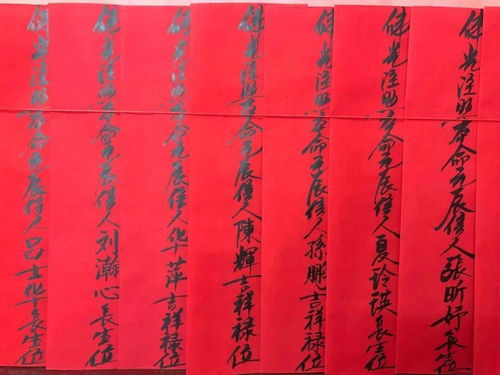 佛光注照本命元辰信人張昕妤長生位
佛光注照本命元辰信人夏玲瑛長生位
佛光注照本命元辰信人孫鵬吉祥禄位
佛光注照本命元辰信人陳輝吉祥禄位
佛光注照本命元辰信人华萍吉祥禄位
佛光注照本命元辰信人刘瀚心長生位
佛光注照本命元辰信人吕士华長生位